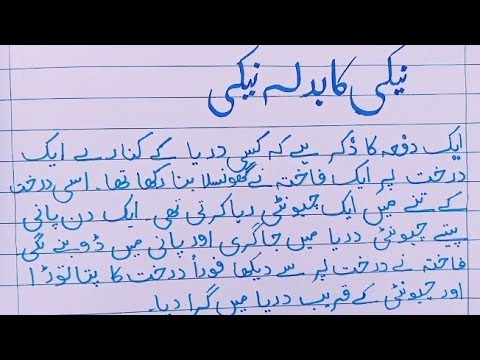 نیکی کا بدلہ نیکی
ایک دفعہ کا ذکر ہے کہ کسی دریا کے کنارے ایک
درخت پر ایک فاختہ نے گھونسلا بنا رکھا تھا۔ اسی درخت
کے تنے میں ایک چیونٹی رہا کرتی تھی۔ ایک دن پانی
پیتے چیونٹی دریا میں جا گری اور پانی میں ڈوبنے لگی
فاختہ نے درخت پر سے دیکھا فوراً درخت کا پتا توڑا
اور چیونٹی کے قریب دریا میں گرا دیا۔